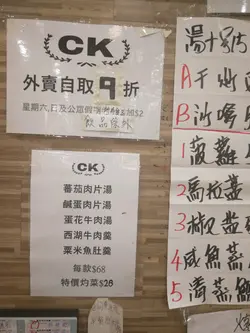 CK
外賣自取9折
星期六,日及公眾假期
飲品除外
CK
蕃茄肉片湯
鹹蛋肉片湯
蛋花牛肉湯
西湖牛肉羹
粟米魚肚羹
每款$68
特價灼菜$28
湯
A
B沙嗲
1菠蘿
2馬拉盞
3椒鹽
4咸魚蒸
5清蒸